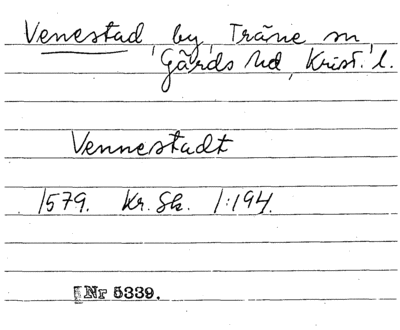 Venestad, by, Träne sn,
Gärds hd, Krist. l.
Vennestadt
1579. Kr. Sk. 1:194.
Nr 5339.